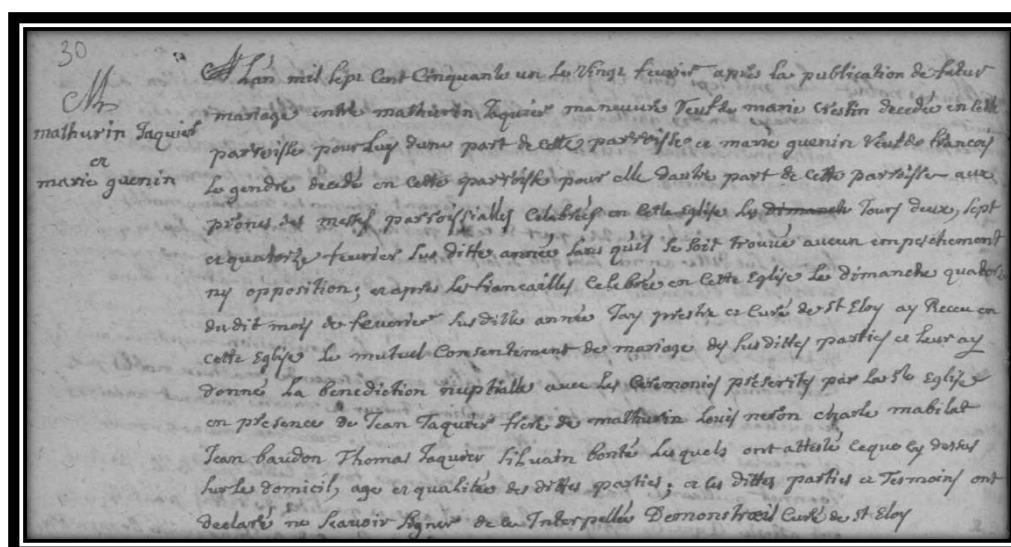 30
M
mathurin Jaquier
et
marie guenin
L'an mil sept Cent Cinquante un Le Vingt fevrier après la publication de futur
mariage entre mathurin Jaquier maneuvre Veuf de marie Crestin decedée en cette
parroisse pour Luy d'une part de cette parroisse et marie guenin Veuf de francois
Le gendre decedé en cette parroisse pour elle d'autre part de cette parroisse aux
prônes des messes parroissialles Celebréés en cette Eglise les dimanch Jours deux, sept
et quatorze fevrier sus ditte année sans qu'il se soit trouvé aucun empeschement
ny opposition; et apres les fiancailles Celebrée en Cette Eglise Le dimanche quatorze
dudit mois de fevrier susditte année J'ay prestre et Curé de St Eloy ay Receu en
cette Eglise Le mutuel Consentement de mariage des susdittes parties et Leur ay
donné La benediction nuptialle avec Les Ceremonies préscrites par La Ste Eglise
en présence de Jean Jaquier frere de mathurin Louis neron charle mabilat
Jean baudon Thomas Jaquier Silvain bonté Lesquels ont attesté ceque cy dessus
sur le domicil, age et qualitée des dittes parties; et les dittes parties et Tesmoins ont
declaré ne scavoir signer de ce Interpellée Demonstroeil Curé de St Eloy